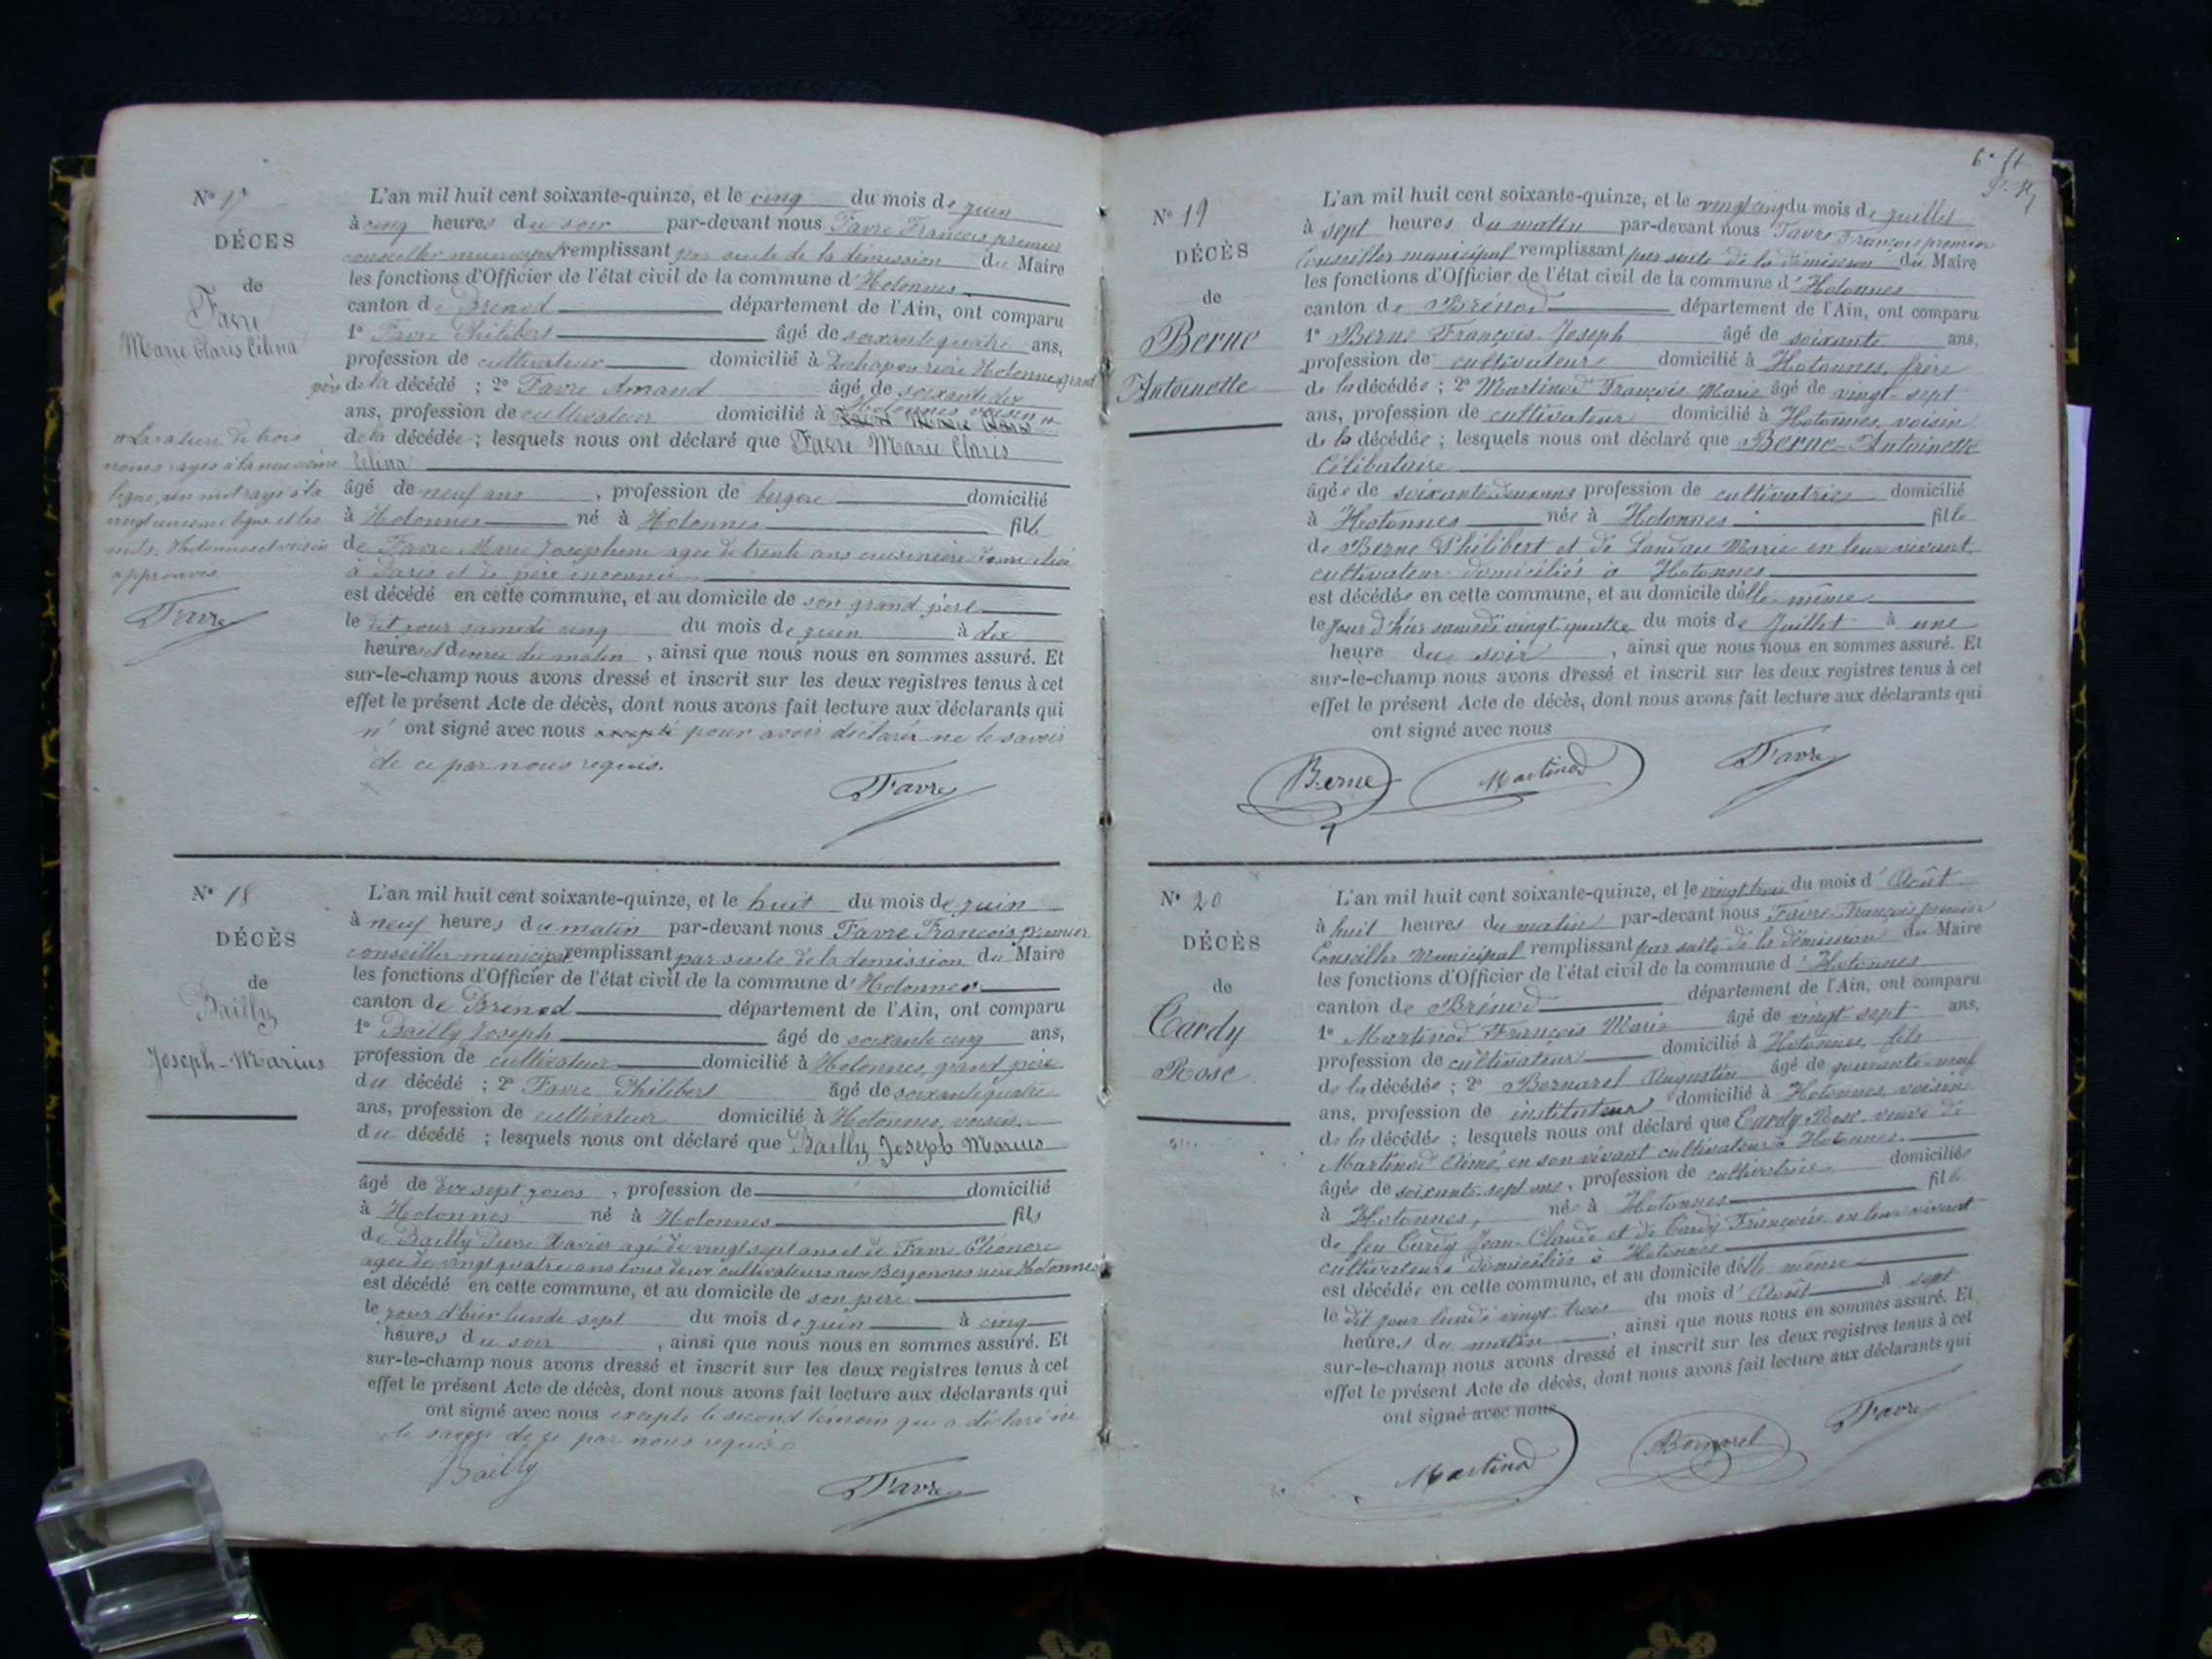 N° 17
DÉCÈS
de
Favre
Marie Claris Célina
L'an mil huit cent soixante-quinze, et le cinq du mois de juin
à cinq heures du soir par-devant nous Favre François premier
conseiller municipal remplissant par suite de la démission du Maire
les fonctions d'Officier de l'état civil de la commune d'Hotonnes
canton de Brénod département de l'Ain, ont comparu
1° Favre Philibert âgé de soixante quatre ans,
profession de cultivateur domicilié à rière Hotonnes grand
père de la décédé ; 2° Favre Amand âgé de soixante dix
ans, profession de cultivateur domicilié à Hotonnes voisin
de la décédée ; lesquels nous ont déclaré que Favre Marie Claris
Célina
âgé de neuf ans , profession de bergère domicilié
à Hotonnes né à Hotonnes fille
de Favre Marie Josephine agée de trente ans cuisinière domiciliée
à Paris et de père inconnu
est décédé en cette commune, et au domicile de son grand père
le dit jour samedi cinq du mois de juin à dix
heures et demie du matin , ainsi que nous nous en sommes assuré. Et
sur-le-champ nous avons dressé et inscrit sur les deux registres tenus à cet
effet le présent Acte de décès, dont nous avons fait lecture aux déclarants qui
n' ont signé avec nous pour avoir déclarér ne le savoir
de ce par nous requis.
Favre
La rature de trois
noms rayés à la neuvième
ligne, un mot rayé à la
vingt unième ligne et les
mots, Hotonnes et voisin
approuvés
Favre
N° 18
DÉCÈS
de
Bailly
Joseph-Marius
L'an mil huit cent soixante-quinze, et le huit du mois de juin
à neuf heures du matin par-devant nous Favre François premier
conseiller municipal remplissant par suite de la demission du Maire
les fonctions d'Officier de l'état civil de la commune d'Hotonnes
canton de Brénod département de l'Ain, ont comparu
1° Bailly Joseph âgé de soixante cinq ans,
profession de cultivateur domicilié à Hotonnes, grand père
du décédé ; 2° Favre Philibert âgé de soixante quatre
ans, profession de cultivateur domicilié à Hotonnes, voisin
du décédé ; lesquels nous ont déclaré que Bailly Joseph Marius
âgé de dix sept jours , profession de domicilié
à Hotonnes né à Hotonnes fils
de Bailly Pierre Xavier agé de vingt sept ans et de Favre Eléonore
agée de vingt quatre ans tous deux cultivateurs aux Bergonnes rière Hotonnes
est décédé en cette commune, et au domicile de son père
le jour d'hier lundi sept du mois de juin à cinq
heures du soir , ainsi que nous nous en sommes assuré. Et
sur-le-champ nous avons dressé et inscrit sur les deux registres tenus à cet
effet le présent Acte de décès, dont nous avons fait lecture aux déclarants qui
ont signé avec nous excepté le second témoin qui a déclaré ne
le savoir de ce par nous requis
Bailly
Favre
N° 19
DÉCÈS
de
Berne
Antoinette
L'an mil huit cent soixante-quinze, et le vingt cinq du mois de juillet
à sept heures du matin par-devant nous Favre François premier
Conseiller municipal remplissant par suite de la démission du Maire
les fonctions d'Officier de l'état civil de la commune d'Hotonnes
canton de Brénod département de l'Ain, ont comparu
1° Berne François Joseph âgé de soixante ans,
profession de cultivateur domicilié à Hotonnes, frère
de la décédée ; 2° Martinod François Marie âgé de vingt-sept
ans, profession de cultivateur domicilié à Hotonnes, voisin
de la décédée ; lesquels nous ont déclaré que Berne Antoinette
Célibataire
âgée de soixante deux ans profession de cultivatrice domicilié
à Hotonnes née à Hotonnes fille
de Berne Philibert et de Landau Marie en leur vivant
cultivateur domiciliés à Hotonnes
est décédée en cette commune, et au domicile d'elle-même
le jour d'hier samedi vingt quatre du mois de Juillet à une
heure du soir , ainsi que nous nous en sommes assuré. Et
sur-le-champ nous avons dressé et inscrit sur les deux registres tenus à cet
effet le présent Acte de décès, dont nous avons fait lecture aux déclarants qui
ont signé avec nous
Berne Martinod Favre
N° 20
DÉCÈS
de
Cardy
Rose
L'an mil huit cent soixante-quinze, et le vingt trois du mois d'Août
à huit heures du matin par-devant nous Favre François premier
Conseiller Municipal remplissant par suite de la démission du Maire
les fonctions d'Officier de l'état civil de la commune d'Hotonnes
canton de Brénod département de l'Ain, ont comparu
1° Martinod François Marie âgé de vingt sept ans,
profession de cultivateur domicilié à Hotonnes, fils
de la décédée ; 2° Bornarel Augustin âgé de quarante-neuf
ans, profession de instituteur domicilié à Hotonnes, voisin
de la décédée ; lesquels nous ont déclaré que Cardy Rose, veuve de
Martinod Aimé, en son vivant cultivateur à Hotonnes.
âgée de soixante-sept ans, profession de cultivatrice domiciliée
à Hotonnes, née à Hotonnes fille
de feu Cardy Jean-Claude et de Cardy Françoise, en leur vivant
cultivateurs domiciliés à Hotonnes
est décédée en cette commune, et au domicile d'elle même
le dit jour lundi vingt-trois du mois d'Août à sept
heures du matin , ainsi que nous nous en sommes assuré. Et
sur-le-champ nous avons dressé et inscrit sur les deux registres tenus à cet
effet le présent Acte de décès, dont nous avons fait lecture aux déclarants qui
ont signé avec nous
Martinod Bornarel Favre